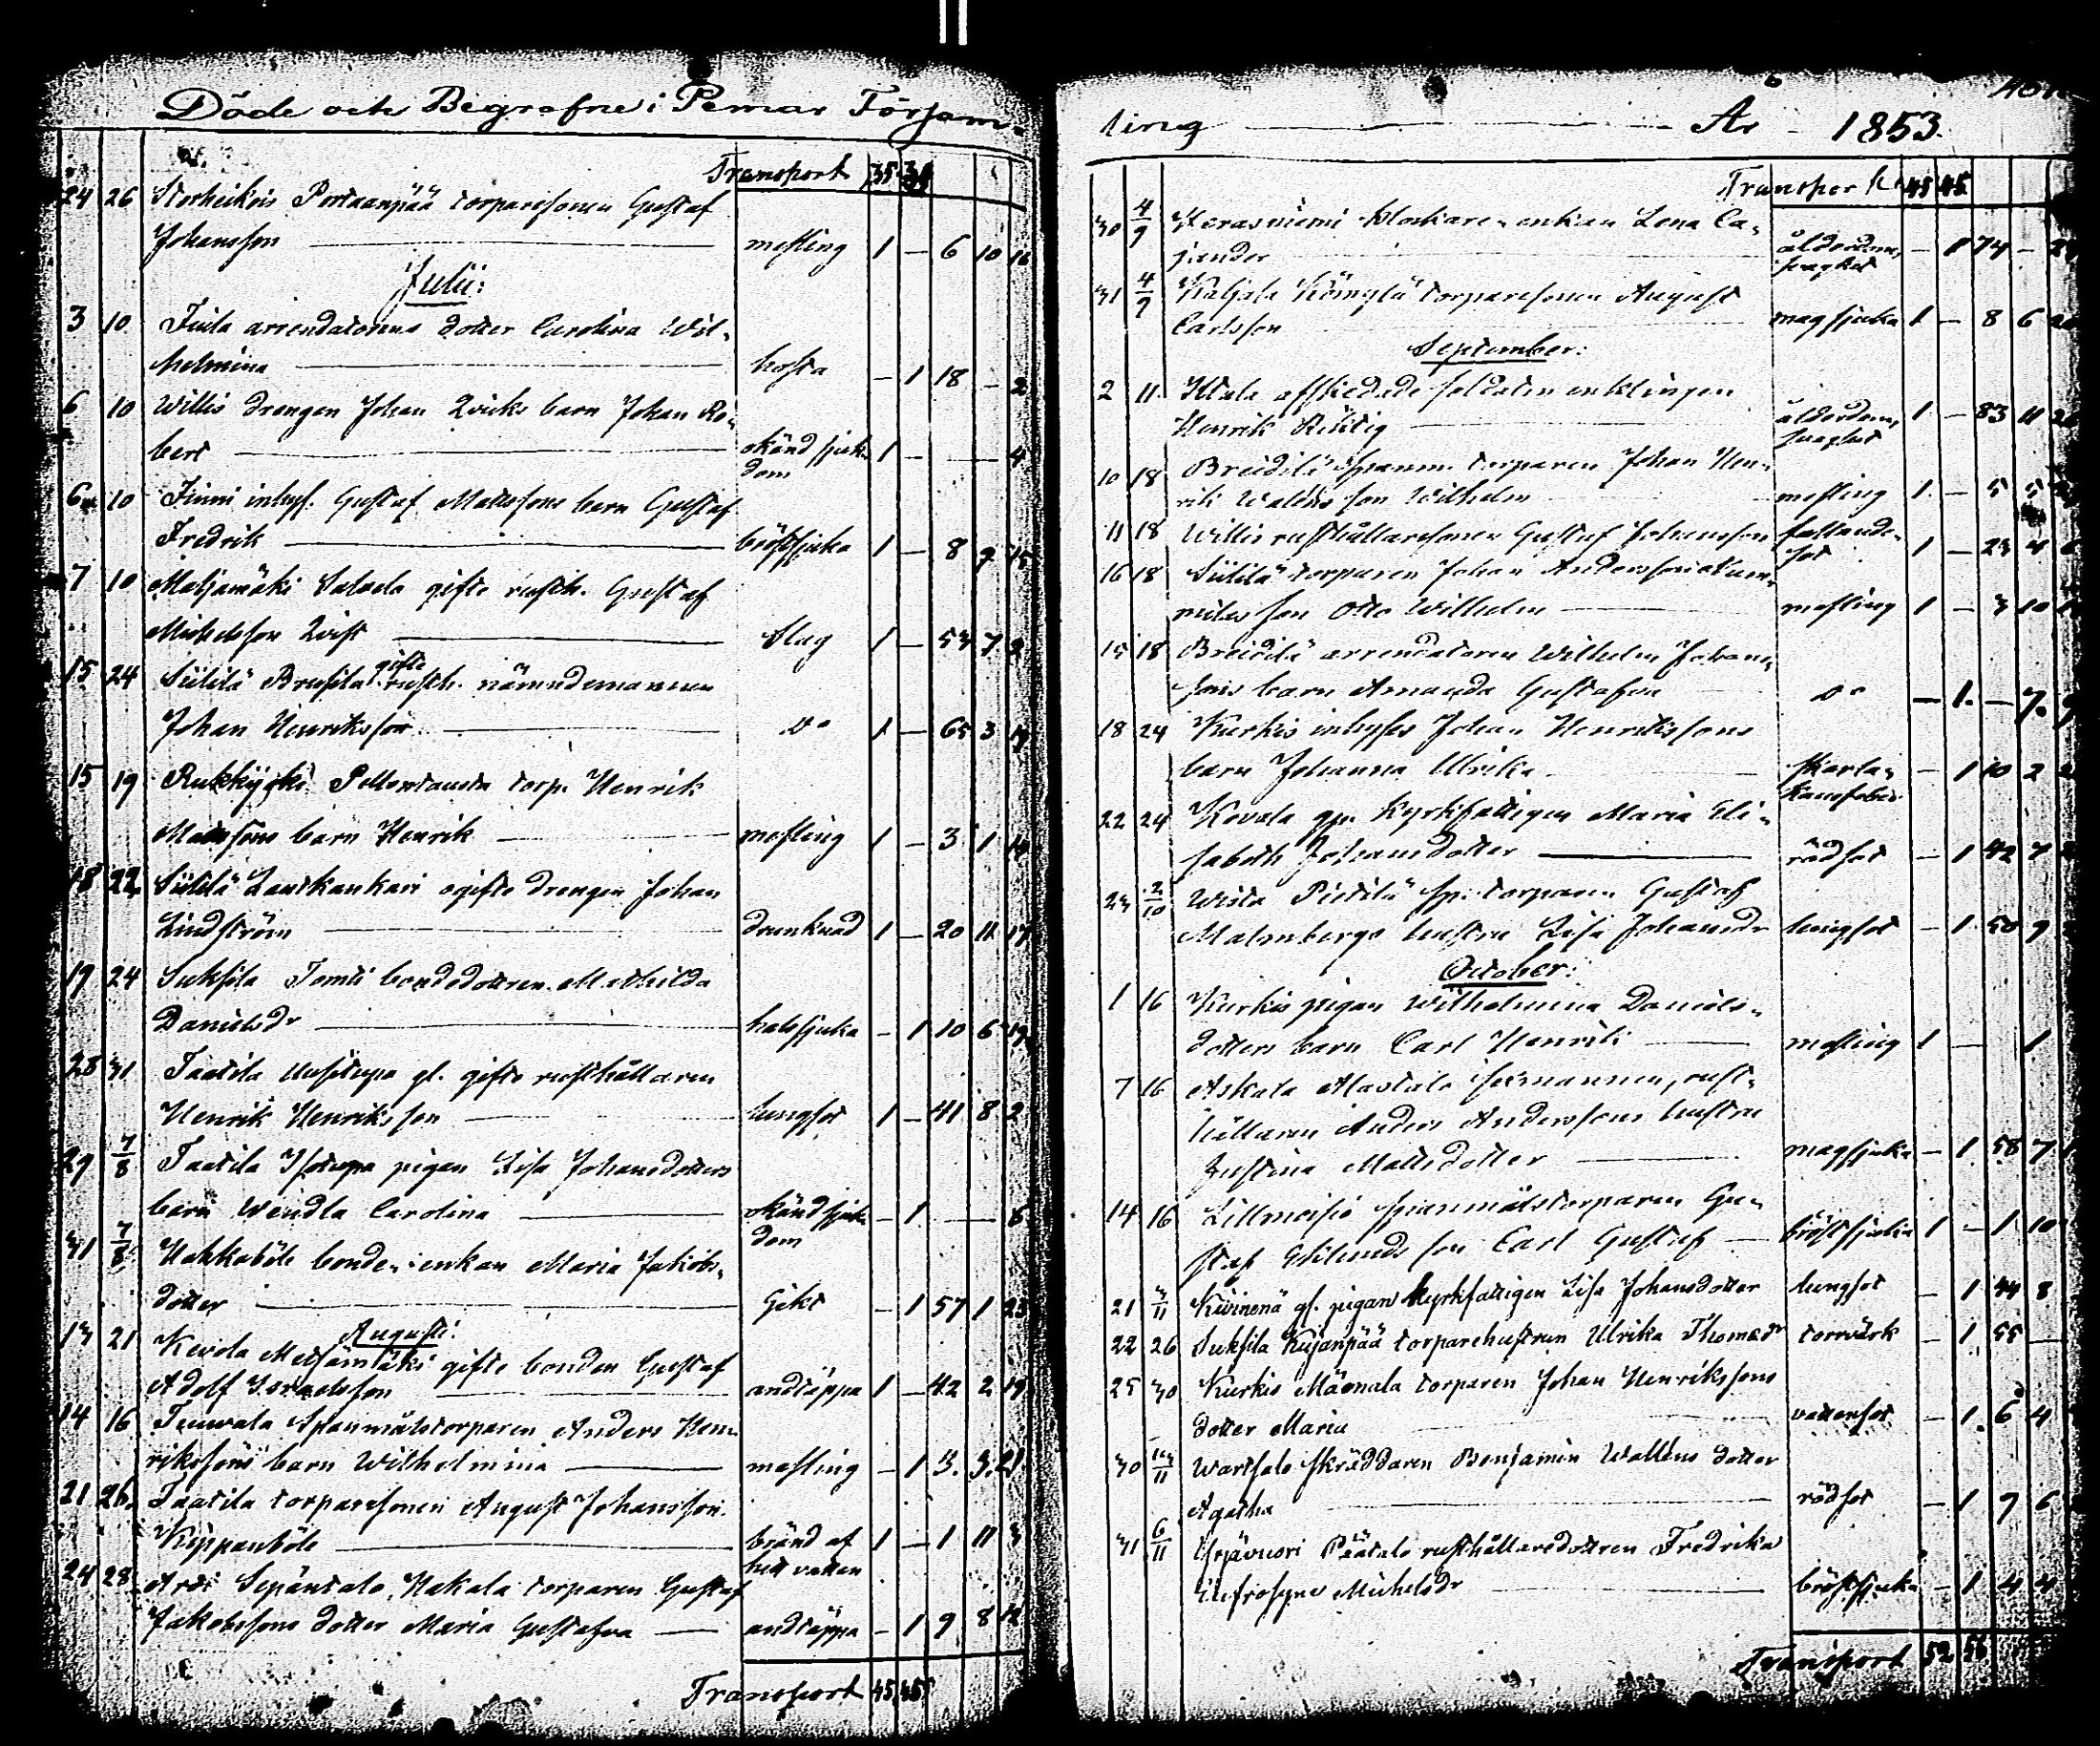 Döde och Begrafne i Pemar Försam-
Transport 35 39
24 26 Storheikois Portaanpää torparesonen Gustaf
Johansson mesling 1 — 6 10 16
Julii:
3 10 Juila arrendatorens dotter Carolina Wil-
helmina hosta — 1 18 — 2
6 10 Willis drengen Johan Qvicks barn Johan Ro-
bert okänd sjuk- 1 — — — 4
dom
6 10 Finni inhys. Gustaf Matssons barn Gustaf
Fredrik bröstsjuka 1 — 8 9 15
7 10 Maljamäki gifte rusth. Gustaf
Michelsson Qvist Slag 1 — 53 7 2
15 24 Siitilä Brusila gifte rusth. nämndemannen
Johan Henriksson do 1 — 65 3 14
15 19 Rukkijoki torp. Henrik
Matssons barn Henrik mesling 1 — 3 1 14
18 22 Siitilä Lautkankari ogifte drengen Johan
Lindström drunknad 1 — 20 11 17
19 24 Suksila Tomti bondedottren Mathilda
Danielsdr halssjuka — 1 10 6 19
28 31 Taatila Uusitupa gl. gifte rusthållaren
Henrik Henriksson lungsot 1 — 41 8 2
29 7/8 Taatila Isotupa pigan Lisa Johansdotters
barn Wendla Carolina okänd sjuk- — 1 — — 6
dom
31 7/8 Nakkaböle bonde-enkan Maria Jakobs-
dotter Gikt — 1 57 1 23
Augusti:
13 21 Kevola Metsämäki gifte bonden Gustaf
Adolf Israelsson andtäppa 1 — 42 2 19
14 16 Juuvala Spanmålstorparen Anders Hen-
rikssons barn Wilhelmina mesling — 1 3 3 21
21 26 Taatila torparesonen August Johansson
Keppanböle bränd af 1 — 1 11 3
het vatten
24 28 Arvi Sepäntalo, Hakala torparen Gustaf
Jakobssons dotter Maria Gustafva andtäppa — 1 9 8 12
Transport 45 45
ling År 1853
Transport 45 45
30 4/9 Kerasniemi klockare-enkan Lena Ca-
jander ålderdoms- — 1 74 —
svaghet
31 4/9 Kaljala Kömylä torparesonen August
Carlsson magsjuka 1 — 8 6
September:
2 11 Ktala afskedade soldaten enklingen
Henrik Riktig ålderdoms- 1 — 83 11
svaghet
10 18 Breidilä spanm. torparen Johan Hen-
rik Waldns son Wilhelm mesling 1 — 5 5
11 18 Willis rusthållaresonen Gustaf Johansson fallande-
sot 1 — 23 4
16 18 Siitilä torparen Johan Anderssons
son Otto Wilhelm mesling 1 — 3 10
15 18 Breidilä arrendatoren Wilhelm Johans-
sons barn Amanda Gustafva do — 1 — 7
18 24 Kurkis inhyses Johan Henrikssons
barn Johanna Ulrika skarla- — 1 10 2
kansfeber
22 24 Kevola gp. kyrkfattigen Maria Eli-
sabeth Johansdotter rödsot — 1 42 7
23 2/10 Wista Pietilä sp. torparen Gustaf
Malmbergs hustru Lisa Johansdr lungsot — 1 50 9
October:
1 16 Kurkis pigan Wilhelmina Daniels-
dotters barn Carl Henrik mesling 1 — 1
7 16 Askala Alastalo sexmannen, rust-
hållaren Anders Anderssons hustru
Justina Mattsdotter magsjuka — 1 58 7
14 16 Lillmoisio spanmålstorparen Gu-
staf son Carl Gustaf bröstsjuka 1 — 1 10
21 3/11 Kivinenä gl. pigan kyrkfattigen Lisa Johansdotter lungsot — 1 44 8
22 26 Suksila Kujanpää torparehustrun Ulrika Thomasdr torrvärk — 1 55 —
25 30 Kurkis Mäenala torparen Johan Henrikssons
dotter Maria vattensot — 1 6 4
30 13/11 Wartsalo skräddaren Benjamin Walléns dotter
Agatha rödsot — 1 7 6
31 6/11 Yrjävuori Päätalo rusthållaredottren Fredrika
Eufrosyne Michelsdr bröstsjuka — 1 4 4
Transport 52 56